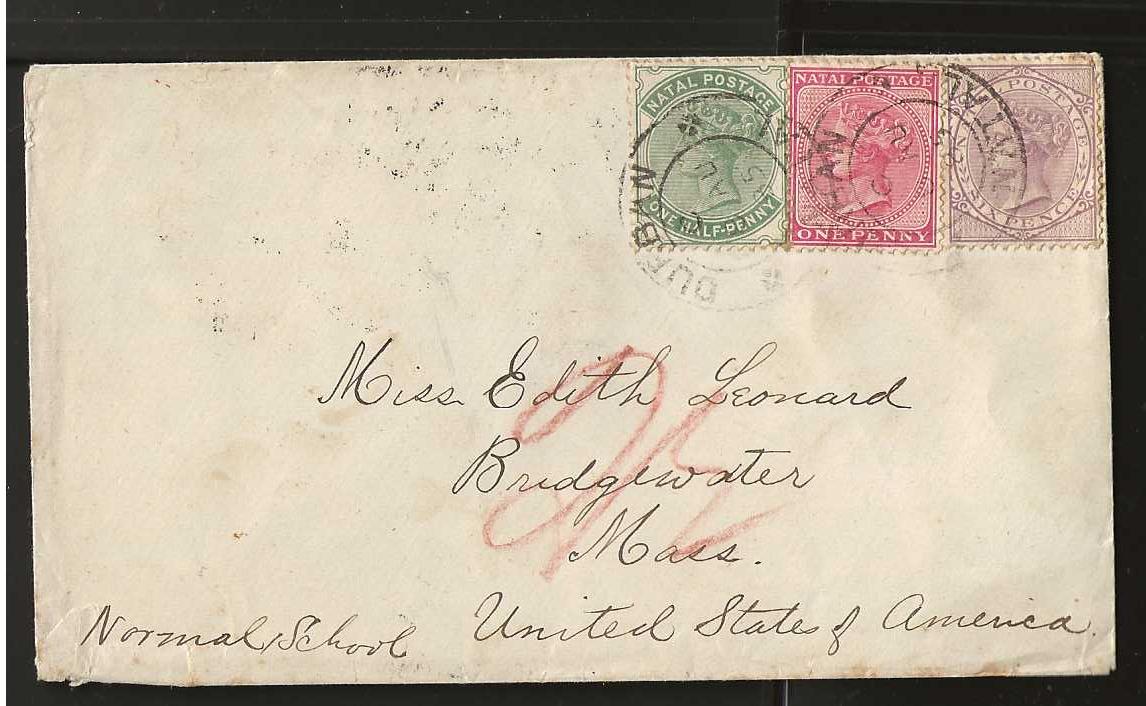 NATAL POSTAGE
ONE HALF-PENNY
NATAL POSTAGE
ONE PENNY
POSTAGE
SIXPENCE
DURBAN
NATAL
5
AU
AU
Miss Edith Leonard
Bridgewater
Mass.
Normal School
United States of America